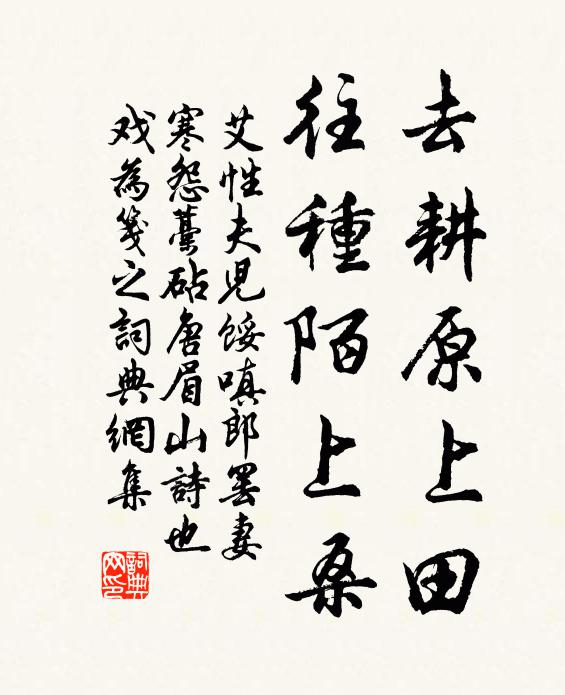 去耕原上田
往種陌上桑
艾性夫兒餒嗔郎罷妻
寒怨藁砧唐眉山詩也
戏為箋之詞典網集
詞典网印